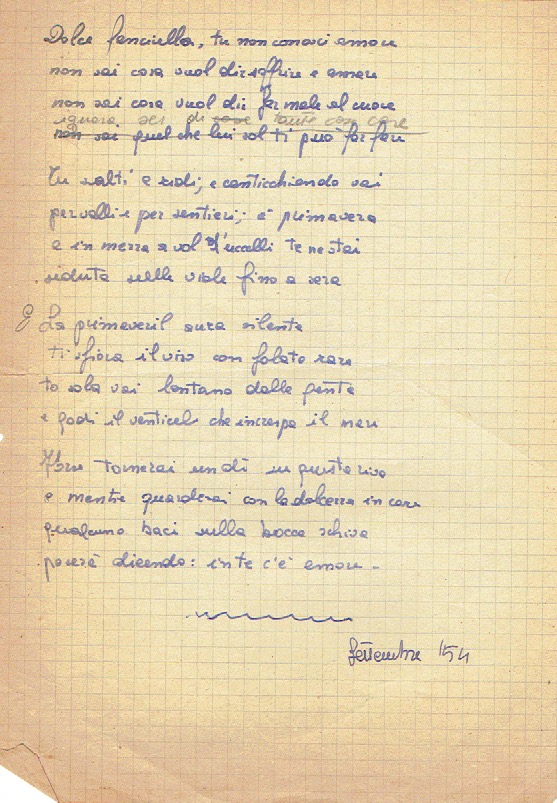 Dolce fanciulla, tu non conosci amore
non sai cosa vuol dir soffrire e amare
non sai cosa vuol dir far male al cuore
ignara sei di cose tante cose care
non sai quel che lui sol ti può far fare
Tu salti e ridi, e canticchiando vai
per valli e per sentieri; è primavera
e in mezzo a vol d'uccelli te ne stai
seduta sulle viole fino a sera
E La primaveril aura silente
ti sfiora il viso con folate rare
tu sola vai lontano dalla gente
e godi il venticel che increspa il mare
tornerai un dì su questa riva
e mentre guarderai con la dolcezza in core
qualcuno baci sulla bocca schiva
poserà dicendo: in te c'è amore -
Settembre '54